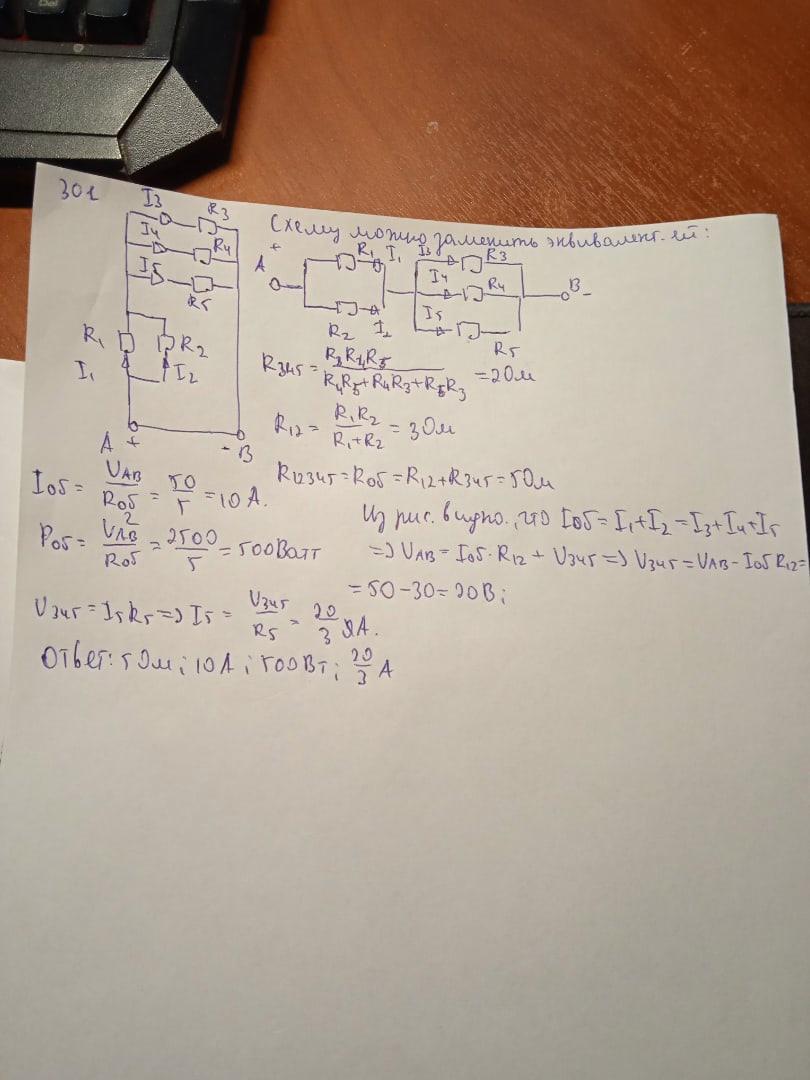 301
I3 R3
I4 R4
I5
R5
R1 R2
I1 I2
A + - B
Схему можно заменить эквивалент. ей:
+ A R1 I1 I3 R3
I4 R4 B -
R2 I2 I5 R5
R345 = R3R4R5 / R4R5+R4R3+R5R3 = 2Ом
R12 = R1R2 / R1+R2 = 3Ом
R12345 = Rоб = R12+R345 = 5Ом
Iоб = UAB / Rоб = 50 / 5 = 10 А.
Pоб = UAB² / Rоб = 2500 / 5 = 500Ватт
Из рис. видно, что Iоб = I1+I2 = I3+I4+I5
=> UAB = Iоб · R12 + U345 => U345 = UAB - Iоб R12 =
= 50 - 30 = 20В;
U345 = I5R5 => I5 = U345 / R5 = 20 / 3 А.
Ответ: 5 Ом; 10А; 500Вт; 20/3 А